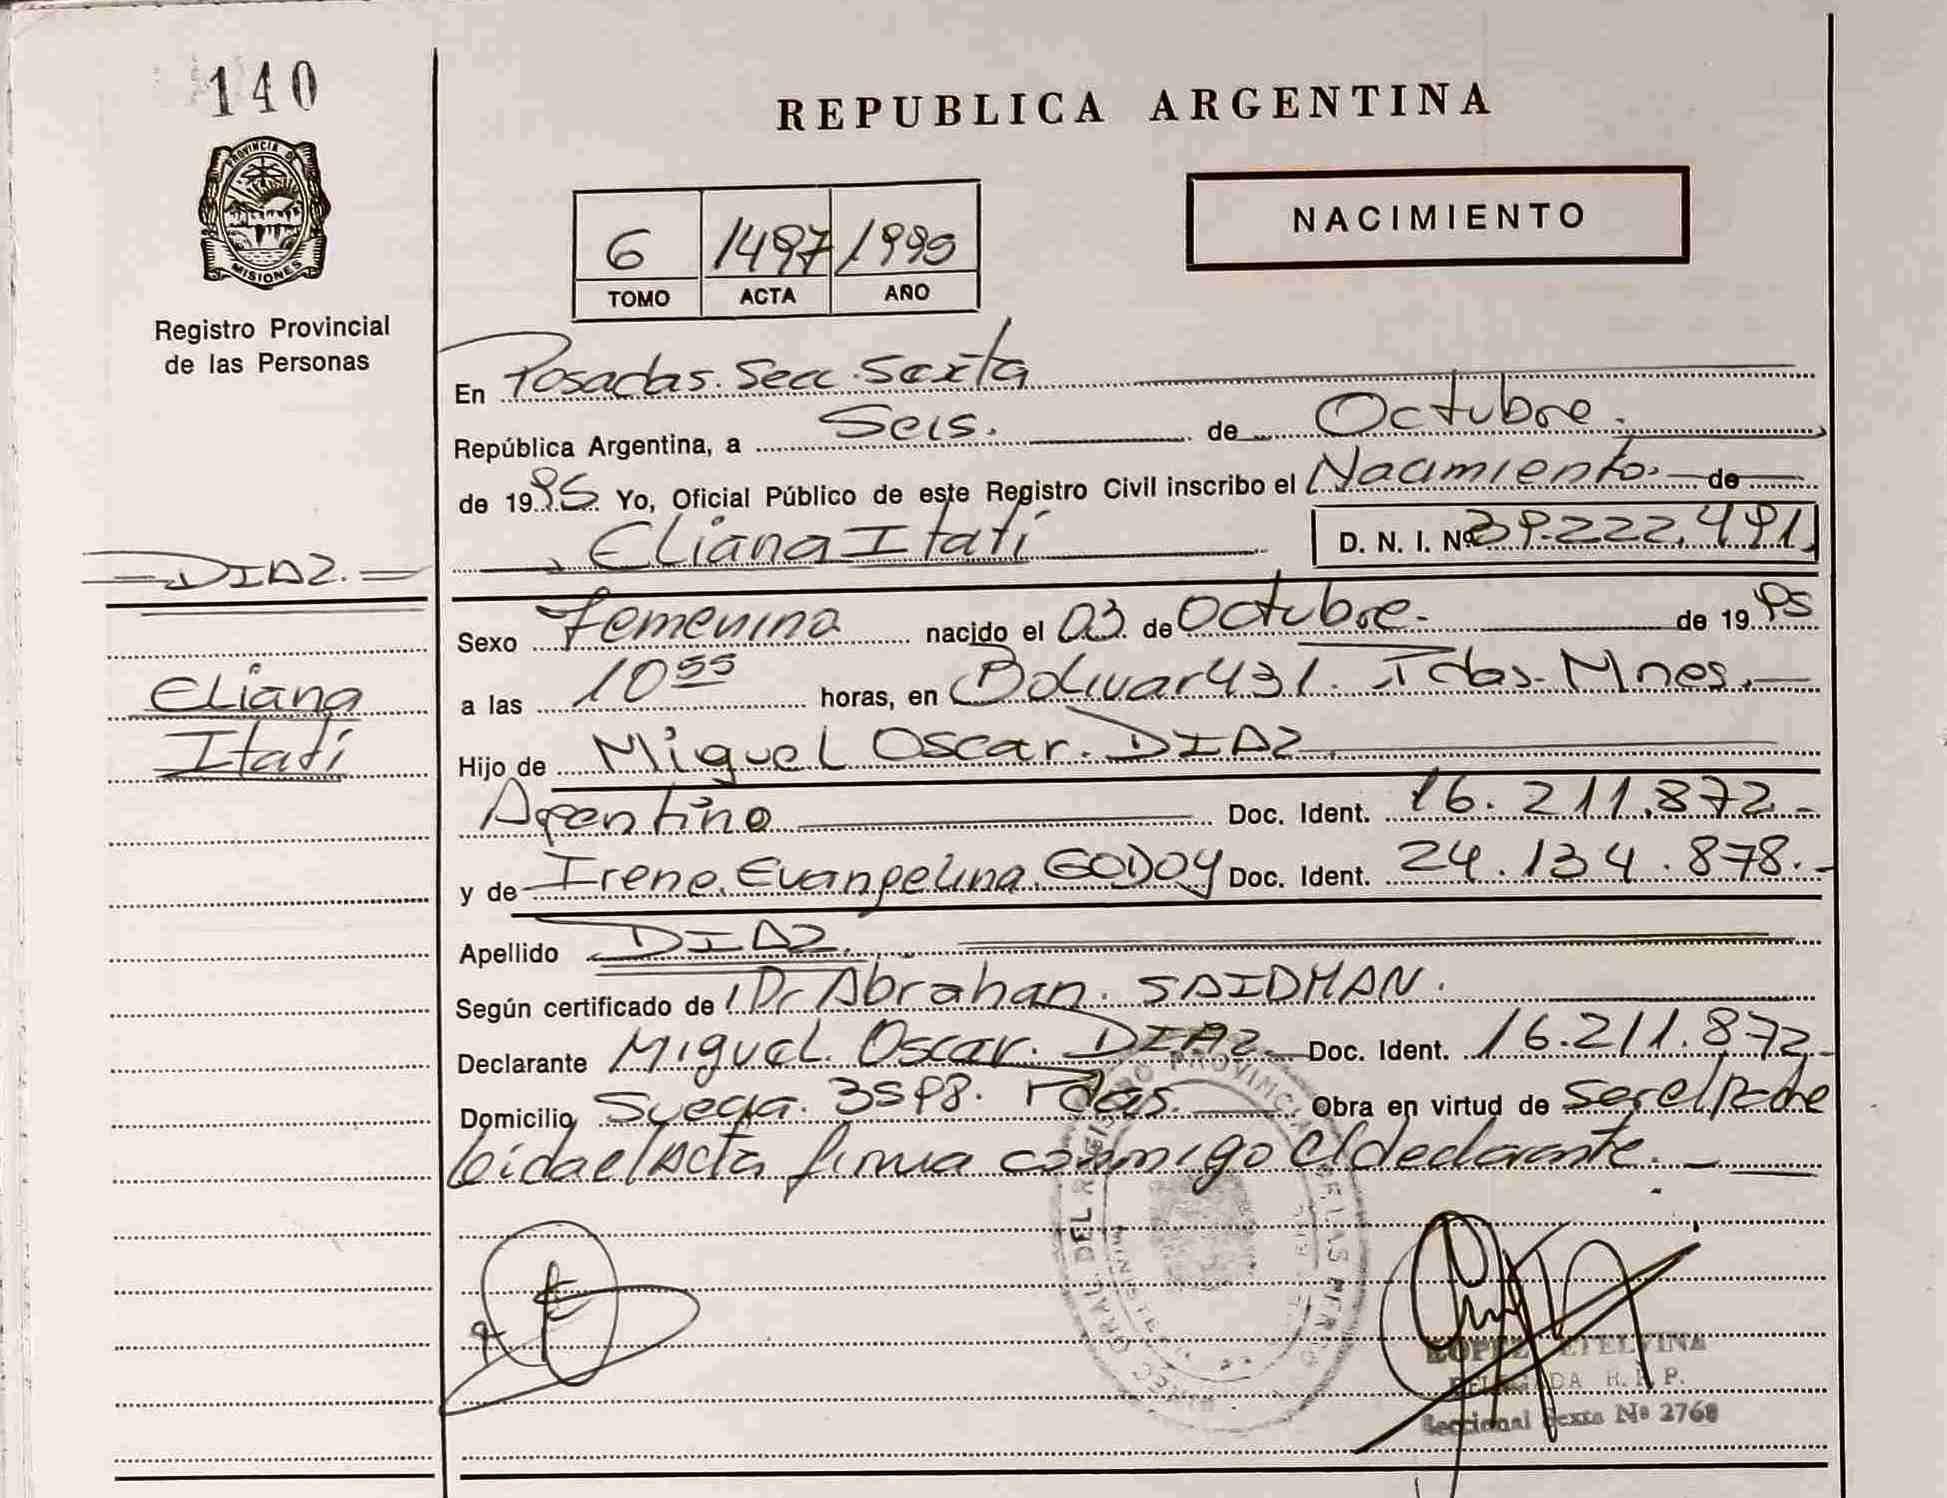 140
PROVINCIA DE
MISIONES
Registro Provincial
de las Personas
REPUBLICA ARGENTINA
NACIMIENTO
6 1497 1995
TOMO ACTA AÑO
En Posadas. Secc. Sexta
República Argentina, a Seis. de Octubre.
de 1995 Yo, Oficial Público de este Registro Civil inscribo el Nacimiento. de
Eliana Itatí D. N. I. Nº 39.222.491
DIAZ.
Eliana
Itatí
Sexo Femenino nacido el 03 de Octubre. de 1995
a las 10 55 horas, en Bolivar 431. Pdas. Mnes.
Hijo de Miguel Oscar. DIAZ.
Argentino Doc. Ident. 16.211.872.-
y de Irene. Evangelina. GODOY Doc. Ident. 24.134.878.-
Apellido DIAZ.
Según certificado de Dr Abrahan. SAIDMAN.
Declarante Miguel. Oscar. DIAZ Doc. Ident. 16.211.872.-
Domicilio Suecia. 3598. Pdas. Obra en virtud de ser el padre
leida el Acta firma conmigo el declarante.
LOPEZ ETELVINA
DELEGADA R. P. P.
Seccional Sexta Nº 2768